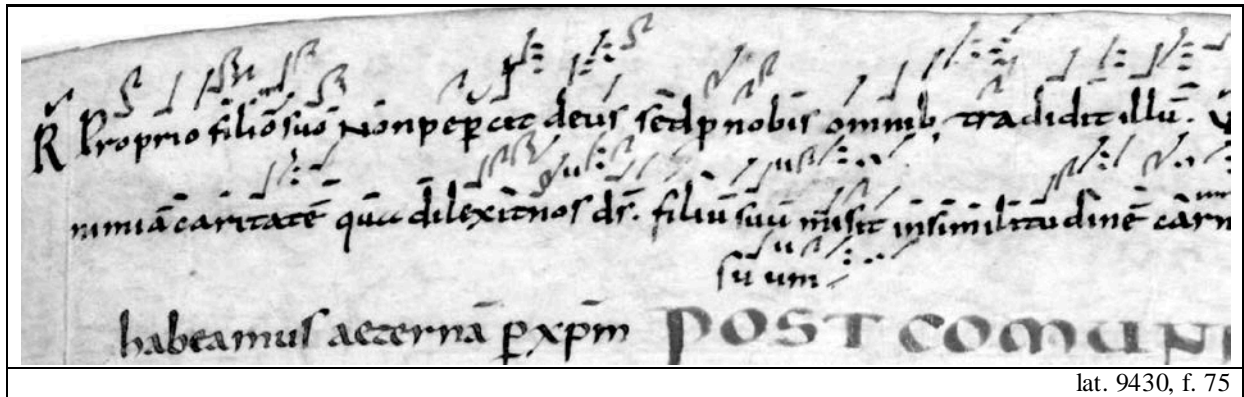 R Proprio filio suo Non pepcit deus sed p nobis omnib; tradidit illū.
nimiā caritatē quā dilexit nos ds. filiū suū misit in similitudinē carn
su um
habeamus aeternā p xpm POST COMUN
lat. 9430, f. 75